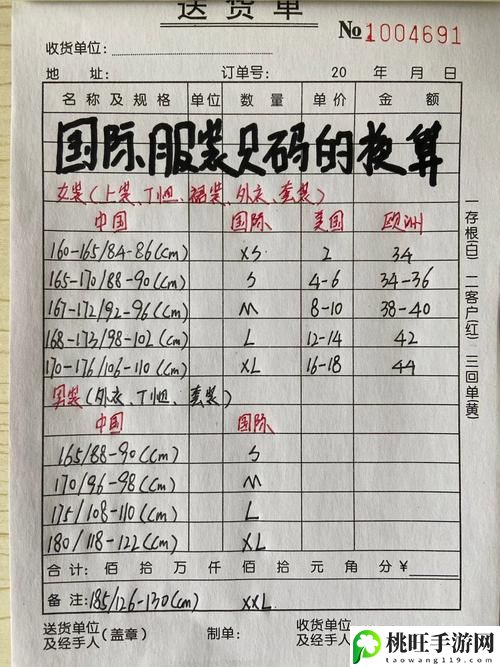 送货单
№1004691
收货单位：
地 址： 订单号： 20 年 月 日
名称及规格 单位 数量 单价 金额
国际服装尺码的换算
女装（上装、T恤、裙装、外衣、套装）
中国 国际 美国 欧洲
160-165/84-86(cm) XS 2 34
165-170/88-90(cm) S 4-6 34-36
167-172/92-96(cm) M 8-10 38-40
168-173/98-102(cm) L 12-14 42
170-176/106-110(cm) XL 16-18 44
男装（外衣、T恤、套装）
中国 国际
165/88-90(cm) S
170/96-98(cm) M
175/108-110(cm) L
180/118-122(cm) XL
合计： 佰 拾 万 仟 佰 拾 元 角 分 ¥
备注：185/126-130(cm) XXL
送货单位及经手人（盖章） 制单： 收货单位及经手人
一存根(白) 二客户(红) 三回单(黄)
桃旺手游网
taowang119.com